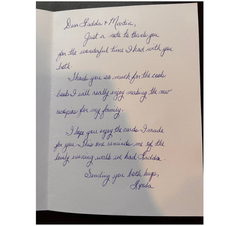 Dear Hudda & Montie,
Just a note to thank you
for the wonderful time I had with you
both.
Thank you so much for the cook
book I will really enjoy making the new
recipes for my family.
I hope you enjoy the cards I made
for you. This one reminds me of the
lovely evening walk we had
Sending you both hugs,